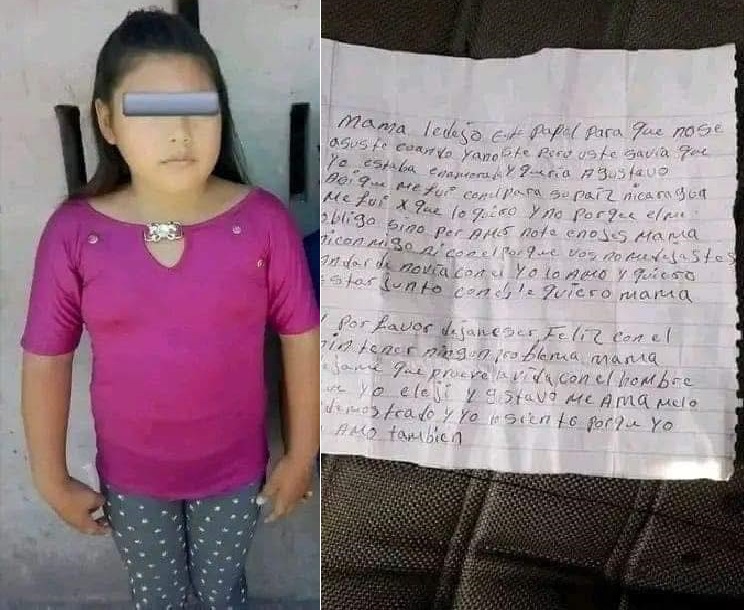 Mama ledejo este papel para que nose
asuste cuando yanoste Pero uste savia que
Yo estaba enamorada y queria AGustavo
Asique me fui conel para su paiz nicaragua
Me fui x que lo quiero y no porque el me
obligo sino por AMO note enojes Mama
niconmigo ni con el porque vos no me dejastes
andar de novia con el Yo lo AMO y quiero
estar junto con el le quiero mama
por favor dejane ser Feliz con el
sin tener ningun problema mama
dejame que prueve la vida con el hombre
que Yo eleji y Gustavo Me AMA Melo
demostrado y Yo lo siento porque Yo
AMO tambien